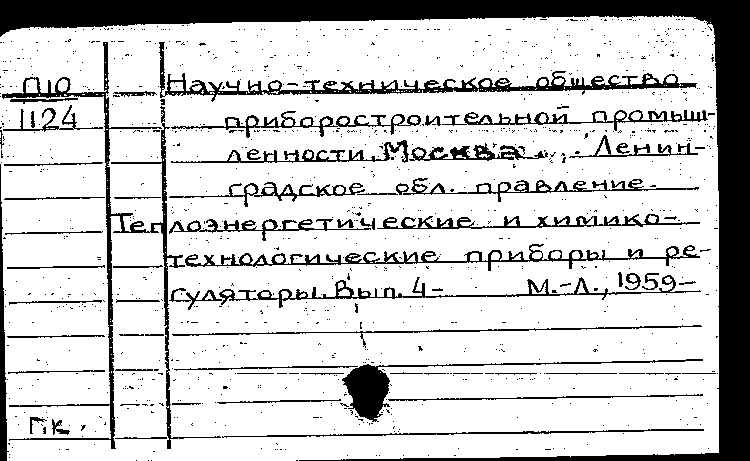 П10
1124
Научно-техническое общество
приборостроительной промыш-
ленности. Москва. Ленин-
градское обл. правление.
Теплоэнергетические и химико-
технологические приборы и ре-
гуляторы. Вып. 4- М.-Л., 1959-
Г.К.